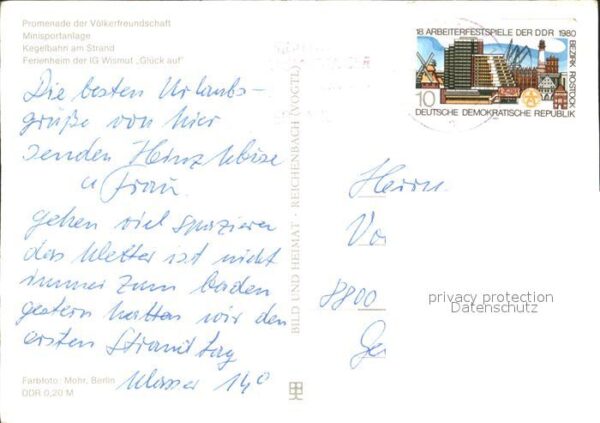 Promenade der Völkerfreundschaft
Minisportanlage
Kegelbahn am Strand
Ferienheim der IG Wismut „Glück auf"
18. ARBEITERFESTSPIELE DER DDR 1980
BEZIRK ROSTOCK
10
DEUTSCHE DEMOKRATISCHE REPUBLIK
Die besten Urlaubs-
grüße von hier
senden Heinz
u Frau.
gehen viel spazieren
das Wetter ist nicht
immer zum baden
gestern hatten wir den
ersten Strandtag
Wasser 14°
BILD UND HEIMAT · REICHENBACH (VOGTL)
Herrn
Vo
8800
privacy protection
Datenschutz
Farbfoto: Mohr, Berlin
DDR 0,20 M